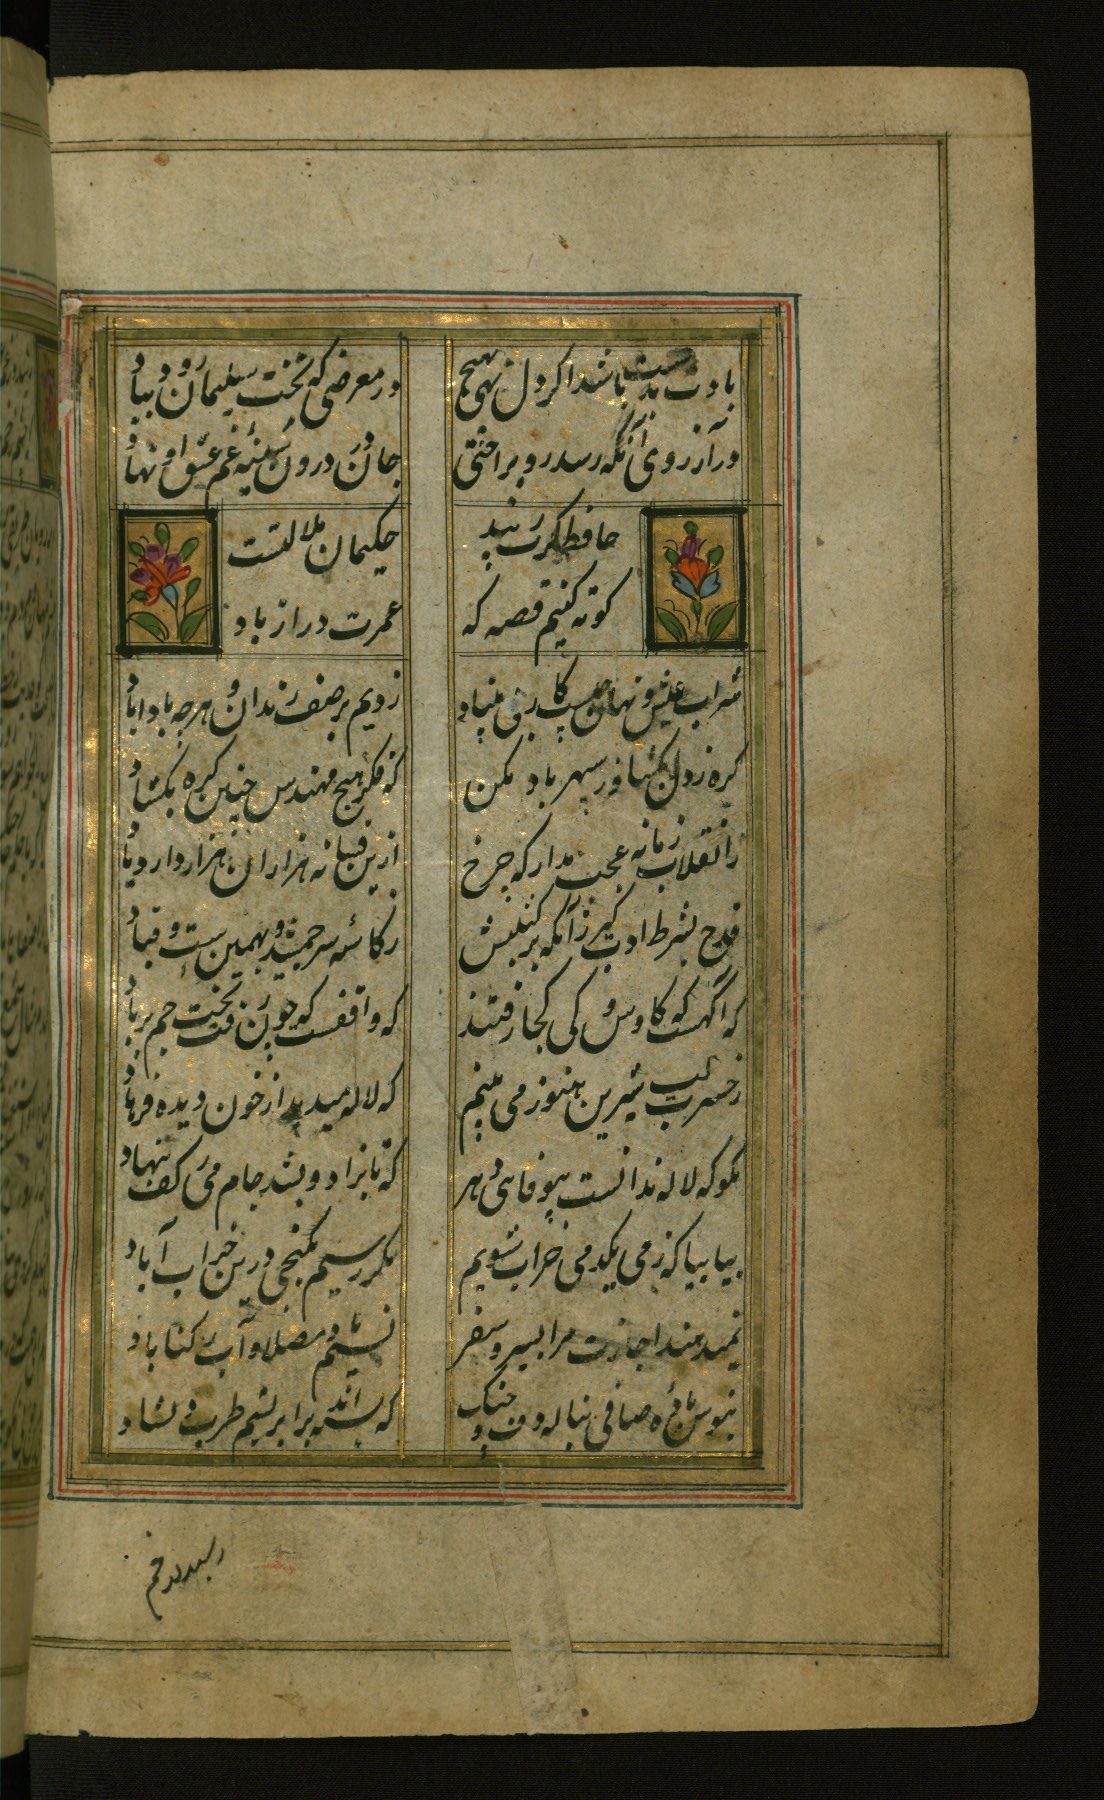 بادت بدست باشد اگر دل نهی بهیچ
در معرضی که تخت سلیمان رود بباد
در آرزوی آنکه رسد
جان در درون سینه غم عشق او نهاد
حافظ گرت ز پند
حکیمان ملالتست
کوته کنیم قصه که
عمرت دراز باد
شراب و عیش نهان چیست کار بی بنیاد
زدیم بر صف رندان و هر چه بادا باد
گره ز دل بگشا وز سپهر یاد مکن
که فکر هیچ مهندس چنین گره نگشاد
ز انقلاب زمانه عجب مدار که چرخ
ازین فسانه هزاران هزار دارد یاد
قدح بشرط ادب گیر زآنکه ترکیبش
ز کاسه سر جمشید و بهمنست و قباد
که آگهست که کاوس و کی کجا رفتند
که واقفست که چون رفت تخت جم بر باد
ز حسرت لب شیرین هنوز می بینم
که لاله میدمد از خون دیده فرهاد
مگر که لاله بدانست بیوفائی دهر
که تا بزاد و بشد جام می ز کف ننهاد
بیا بیا که ز می یکدمی خراب شویم
مگر رسیم بگنجی درین خراب آباد
نمیدهند اجازت مرا بسیر و سفر
نسیم مصلا و آب رکناباد
بنوش باده صافی بناله دف و چنگ
که بسته اند بر ابریشم طرب دلشاد
رسید در غم